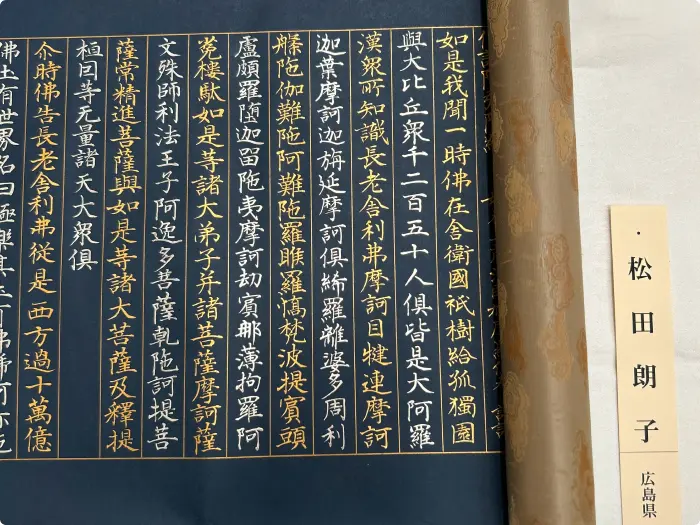 如是我聞一時佛在舍衛國祇樹給孤獨園
與大比丘衆千二百五十人俱皆是大阿羅
漢衆所知識長老舍利弗摩訶目犍連摩訶
迦葉摩訶迦旃延摩訶俱絺羅離婆多周利
槃陁伽難陁阿難陁羅睺羅憍梵波提賓頭
盧頗羅墮迦留陁夷摩訶劫賓那薄拘羅阿
㝹樓馱如是等諸大弟子并諸菩薩摩訶薩
文殊師利法王子阿逸多菩薩乹陁訶提菩
薩常精進菩薩與如是等諸大菩薩及釋提
桓因等无量諸天大衆俱
尒時佛告長老舍利弗從是西方過十萬億
佛土有世界名曰極樂其土有佛
・松田朗子
広島県